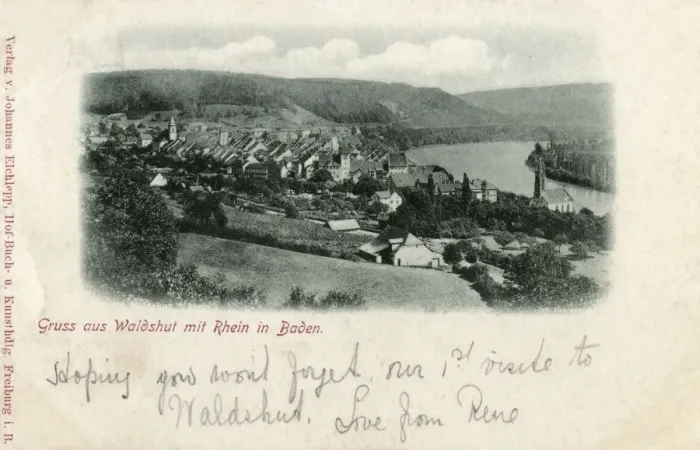 Verlag v. Johannes Elchlepp, Hof-Buch- u. Kunsthdlg Freiburg i. B.
Gruss aus Waldshut mit Rhein in Baden.
Hoping you wont forget, our 1st visite to
Waldshut. Love from Rene